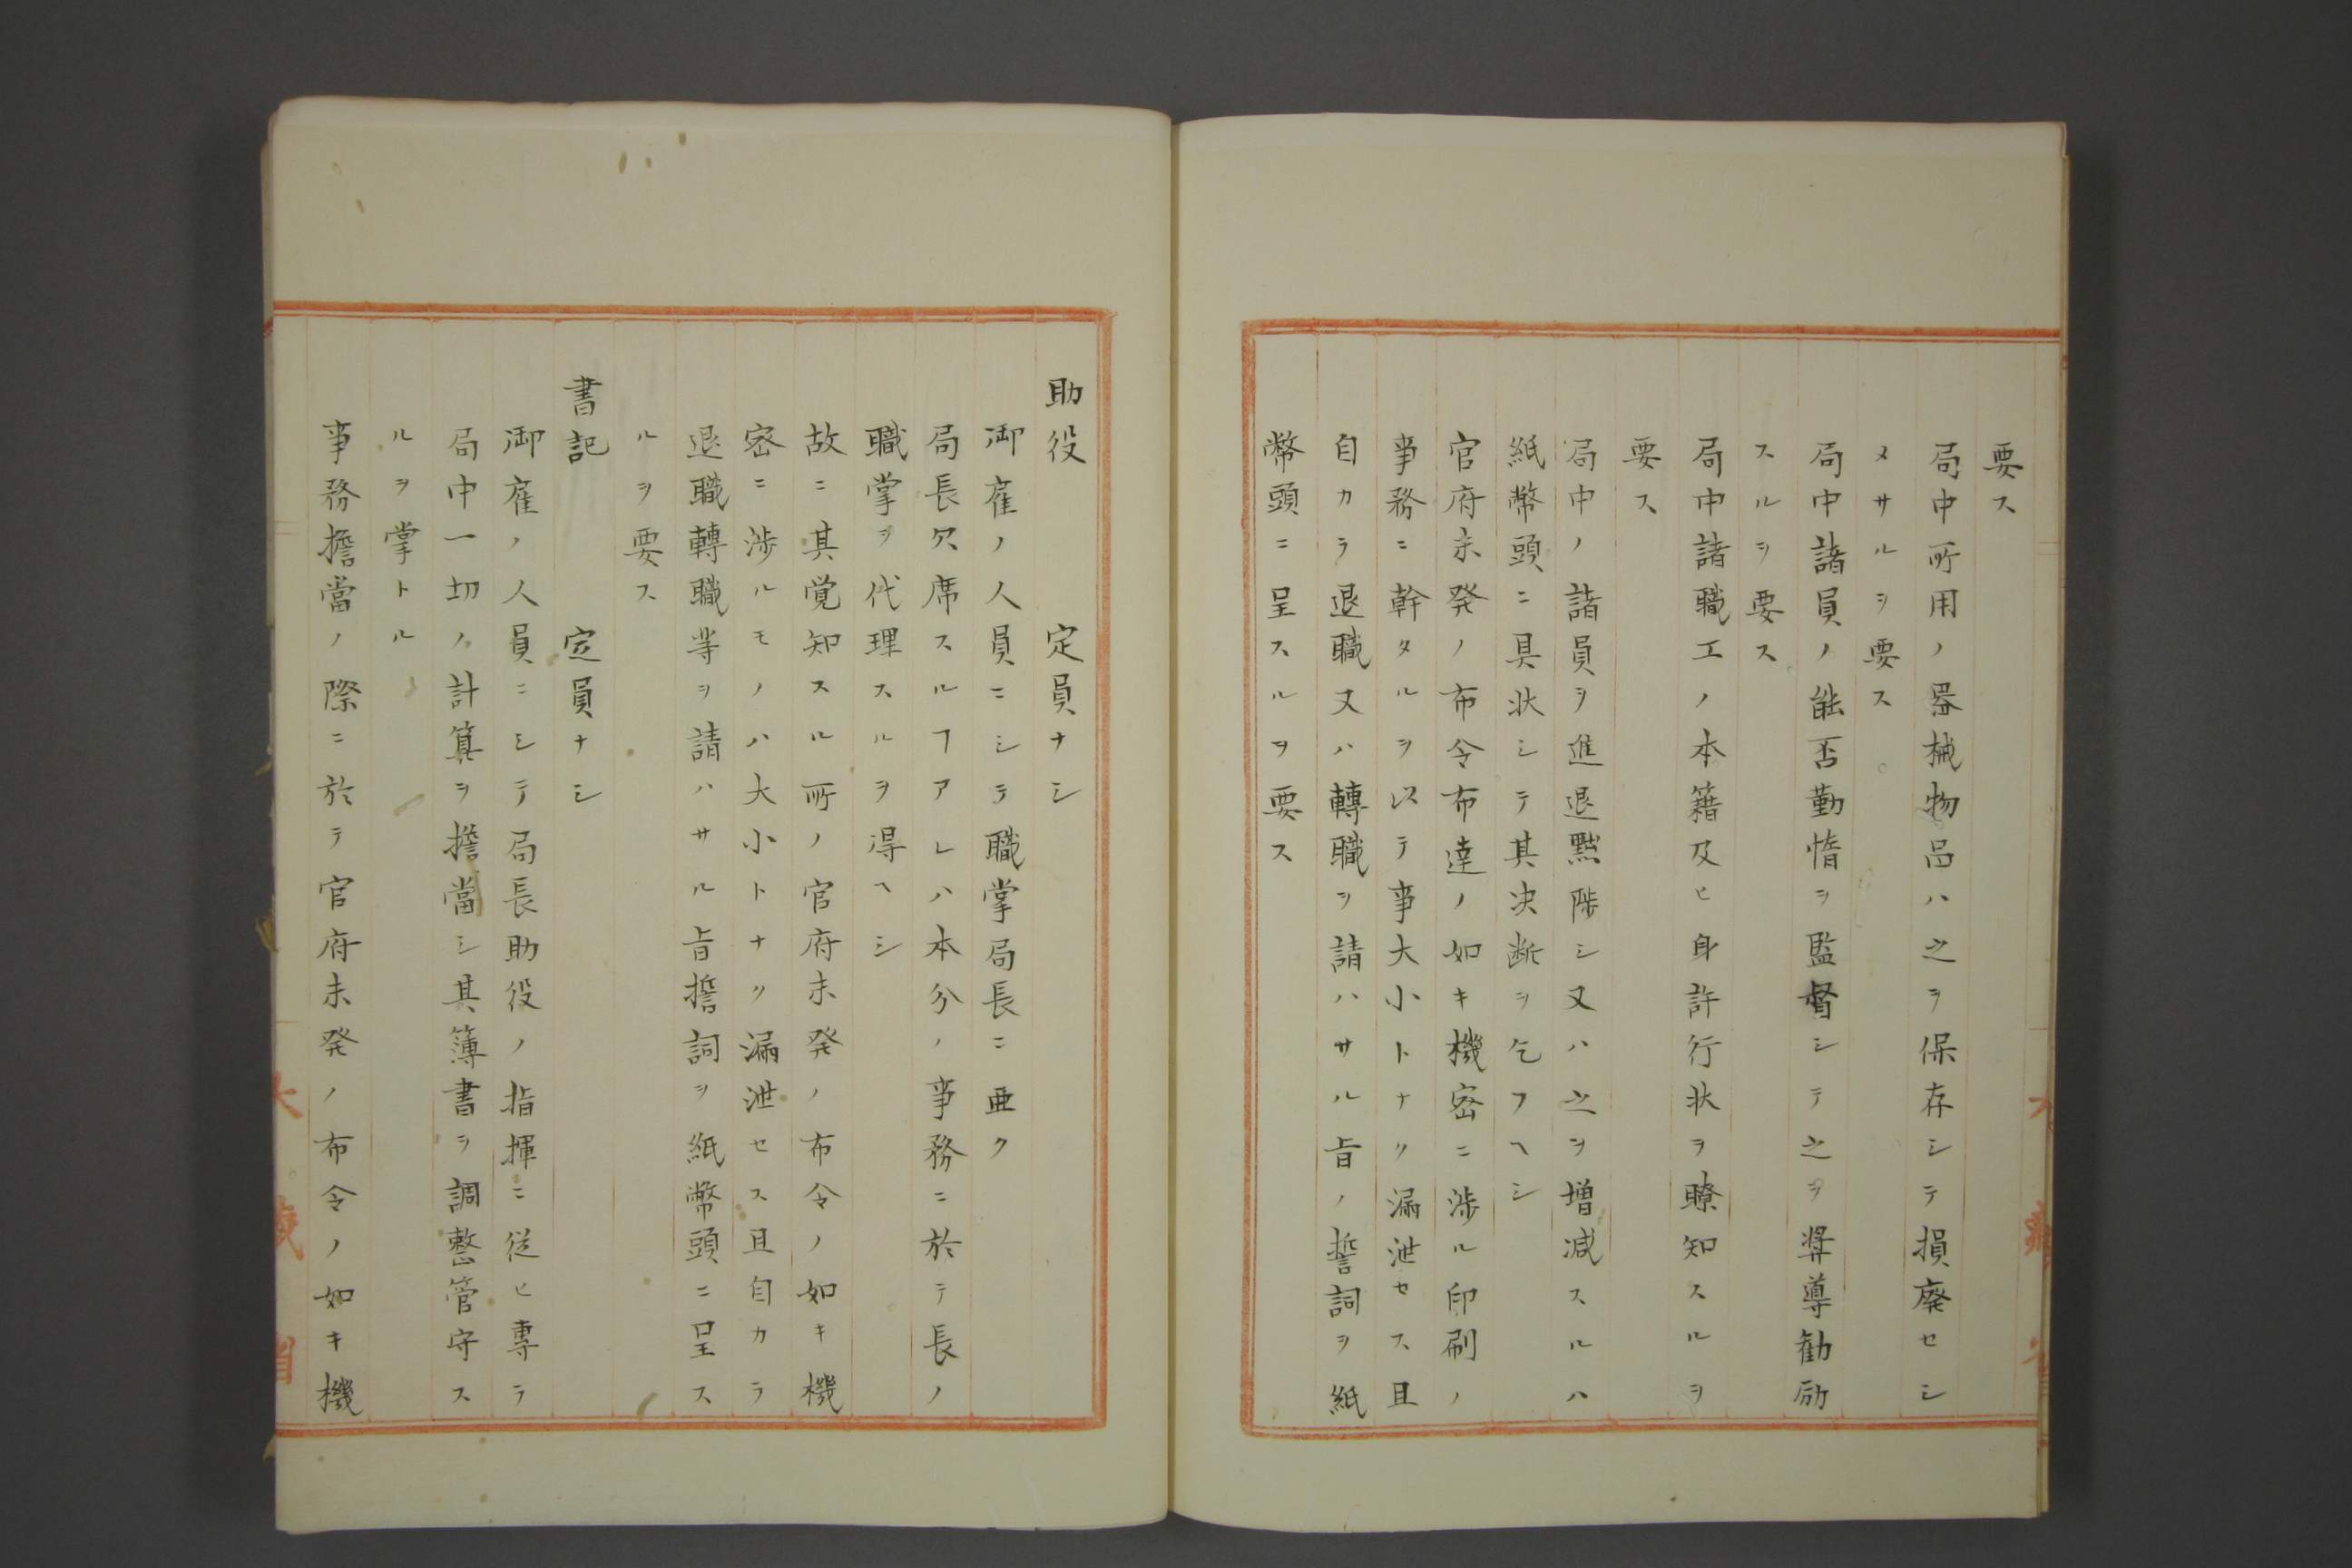 要ス
局中所用ノ器械物品ハ之ヲ保存シテ損廃セシ
メサルヲ要ス
局中諸員ノ能否勤惰ヲ監督シテ之ヲ奨導勧励
スルヲ要ス
局中諸職工ノ本籍及ヒ身許行状ヲ瞭知スルヲ
要ス
局中ノ諸員ヲ進退黜陟シ又ハ之ヲ増減スルハ
紙幣頭ニ具状シテ其决断ヲ乞フヘシ
官府未発ノ布令布達ノ如キ機密ニ渉ル印刷ノ
事務ニ幹タルヲ以テ事大小トナク漏泄セス且
自カラ退職又ハ轉職ヲ請ハサル旨ノ誓詞ヲ紙
幣頭ニ呈スルヲ要ス
助役 定員ナシ
御雇ノ人員ニシテ職掌局長ニ亜ク
局長欠席スルヿアレハ本分ノ事務ニ於テ長ノ
職掌ヲ代理スルヲ得ヘシ
故ニ其覚知スル所ノ官府未発ノ布令ノ如キ機
密ニ渉ルモノハ大小トナク漏泄セス且自カラ
退職轉職等ヲ請ハサル旨誓詞ヲ紙幣頭ニ呈ス
ルヲ要ス
書記 定員ナシ
御雇ノ人員ニシテ局長助役ノ指揮ニ従ヒ専ラ
局中一切ノ計算ヲ擔當シ其簿書ヲ調整管守ス
ルヲ掌トル
事務擔當ノ際ニ於テ官府未発ノ布令ノ如キ機
大蔵省